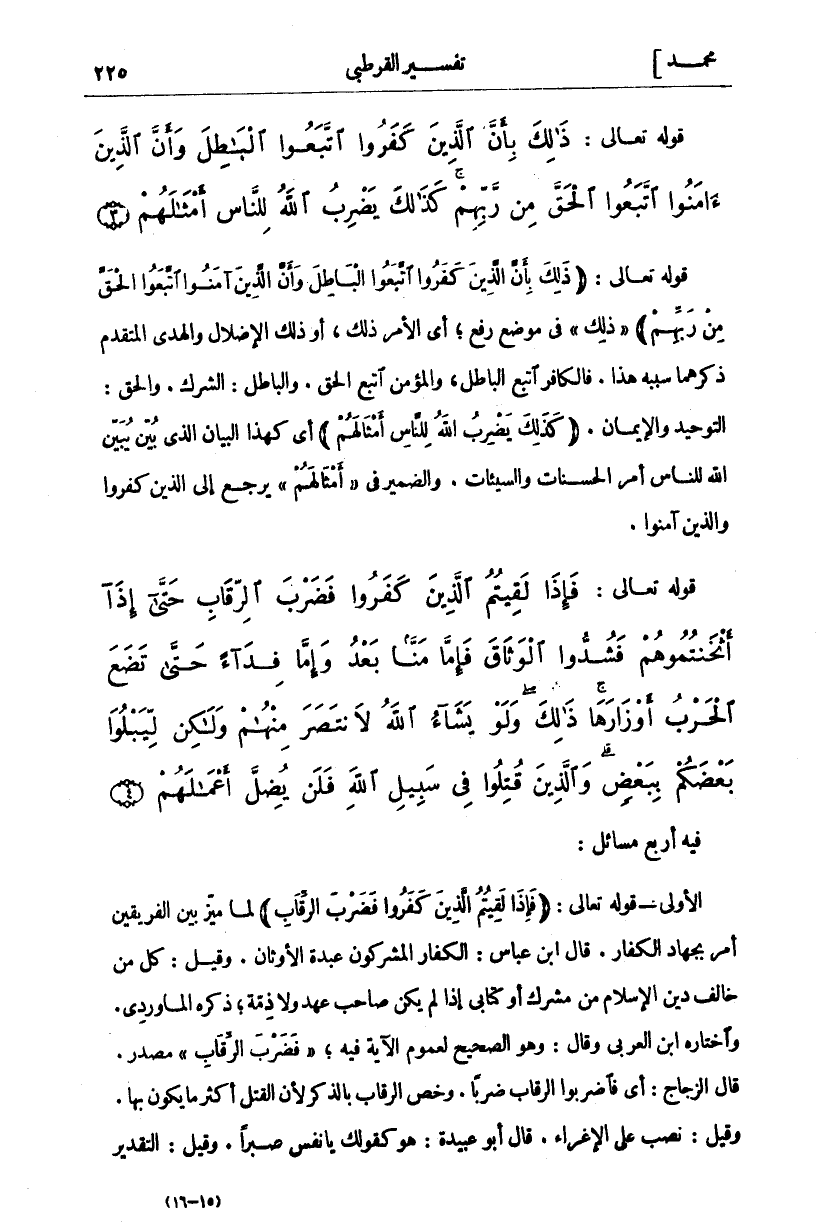 محمد]
تفسير القرطبى
٢٢٥
قوله تعالى : ذَٰلِكَ بِأَنَّ ٱلَّذِينَ كَفَرُوا ٱتَّبَعُوا ٱلْبَـٰطِلَ وَأَنَّ ٱلَّذِينَ
ءَامَنُوا ٱتَّبَعُوا ٱلْحَقَّ مِن رَّبِّهِمْ ۚ كَذَٰلِكَ يَضْرِبُ ٱللَّهُ لِلنَّاسِ أَمْثَـٰلَهُمْ ﴿٣﴾
قوله تعالى : ﴿ ذَلِكَ بِأَنَّ الَّذِينَ كَفَرُوا ٱتَّبَعُوا الْبَاطِلَ وَأَنَّ الَّذِينَ آمَنُوا ٱتَّبَعُوا الْحَقَّ
مِنْ رَبِّهِمْ ﴾ « ذلك » فى موضع رفع ؛ أى الأمر ذلك ، أو ذلك الإضلال والهدى المتقدم
ذكرهما سببه هذا . فالكافر ٱتبع الباطل، والمؤمن ٱتبع الحق . والباطل : الشرك . والحق :
التوحيد والإيمان . ﴿ كَذَلِكَ يَضْرِبُ اللهُ لِلنَّاسِ أَمْثَالَهُمْ ﴾ أى كهذا البيان الذى بُيّن يُبَيّن
الله للناس أمر الحسنات والسيئات . والضمير فى « أَمْثَالَهُمْ » يرجع إلى الذين كفروا
والذين آمنوا .
قوله تعالى : فَإِذَا لَقِيتُمُ ٱلَّذِينَ كَفَرُوا فَضَرْبَ ٱلرِّقَابِ حَتَّىٰٓ إِذَآ
أَثْخَنتُمُوهُمْ فَشُدُّوا ٱلْوَثَاقَ فَإِمَّا مَنًّا بَعْدُ وَإِمَّا فِدَآءً حَتَّىٰ تَضَعَ
ٱلْحَرْبُ أَوْزَارَهَا ۚ ذَٰلِكَ ۖ وَلَوْ يَشَآءُ ٱللَّهُ لَٱنتَصَرَ مِنْهُمْ وَلَـٰكِن لِّيَبْلُوَا
بَعْضَكُم بِبَعْضٍ ۗ وَٱلَّذِينَ قُتِلُوا فِى سَبِيلِ ٱللَّهِ فَلَن يُضِلَّ أَعْمَـٰلَهُمْ ﴿٤﴾
فيه أربع مسائل :
الأولى — قوله تعالى : ﴿ فَإِذَا لَقِيتُمُ الَّذِينَ كَفَرُوا فَضَرْبَ الرِّقَابِ ﴾ لما ميّز بين الفريقين
أمر بجهاد الكفار . قال ابن عباس : الكفار المشركون عبدة الأوثان . وقيل : كل من
خالف دين الإسلام من مشرك أو كتابى إذا لم يكن صاحب عهد ولا ذِمّة ؛ ذكره الماوردى .
وٱختاره ابن العربى وقال : وهو الصحيح لعموم الآية فيه ؛ « فَضَرْبَ الرِّقَابِ » مصدر .
قال الزجاج : أى فٱضربوا الرقاب ضربًا . وخص الرقاب بالذكر لأن القتل أكثر ما يكون بها .
وقيل : نصب على الإغراء . قال أبو عبيدة : هو كقولك يا نفس صبراً . وقيل : التقدير
(١٥–١٦)